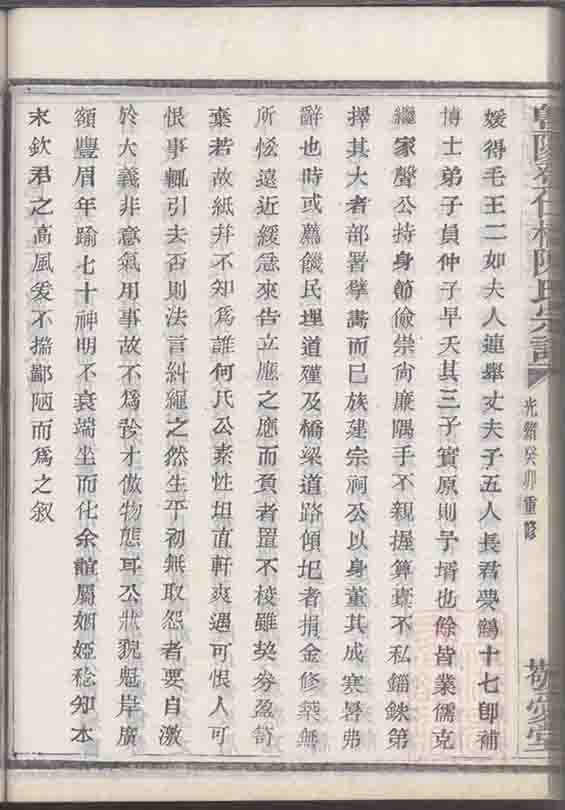 媛得毛王二如夫人連舉丈夫子五人長君夢鶴十七卽補
博士弟子員仲子早夭其三子實原則予壻也餘皆業儒克
繼家聲公持身節儉崇尙廉隅手不親握算橐不私錙銖第
擇其大者部署擘畫而已族建宗祠公以身董其成寒暑弗
辭也時或薦饑民埋道殣及橋梁道路傾圮者捐金修築無
所恡遠近緩急來告立應之應而負者置不校雖契劵盈笥
棄若故紙幷不知爲誰何氏公素性坦直軒爽遇可恨人可
恨事輒引去否則法言糾繩之然生平初無取怨者要自激
於大義非意氣用事故不爲矜才傲物態耳公狀貌魁岸廣
額豐眉年踰七十神明不衰端坐而化余誼屬姻婭稔知本
末欽君之高風爰不揣鄙陋而爲之叙
陳氏宗譜
光緒癸卯重修
敬愛堂